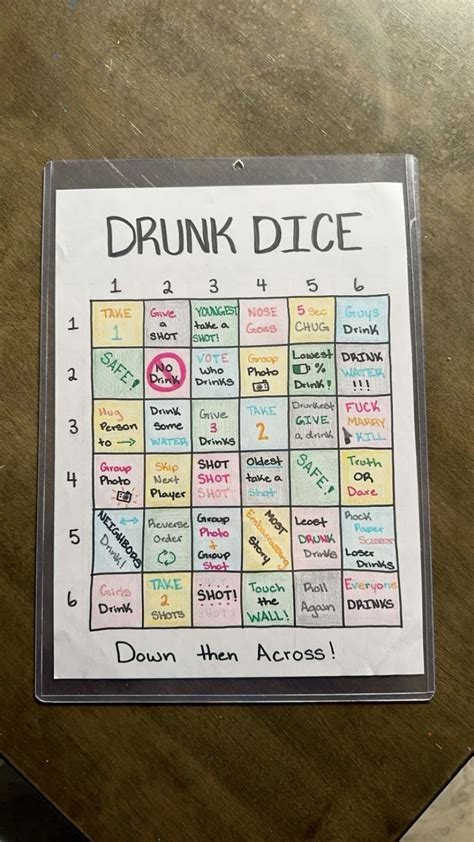 DRUNK DICE
1 2 3 4 5 6
1
TAKE
1
Give
a
SHOT
YOUNGEST
take a
SHOT!
NOSE
Goes
5 Sec
CHUG
Guys
Drink
2
SAFE!
No
Drink
VOTE
Who
Drinks
Group
Photo
Lowest
%
Drink!
DRINK
WATER
!!!
3
Hug
Person
to →
Drink
Some
WATER
Give
3
Drinks
TAKE
2
Drunkest
GIVE
a drink
FUCK
MARRY
KILL
4
Group
Photo
Skip
Next
Player
SHOT
SHOT
SHOT
Oldest
take a
Shot
SAFE!
Truth
OR
Dare
5
NEIGHBORS
Drink!
Reverse
Order
Group
Photo
+
Group
Shot
MOST
Embarrassing
Story
Least
DRUNK
Drinks
Rock
Paper
Scissor
Loser
Drinks
6
Girls
Drink
TAKE
2
SHOTS
SHOT!
Touch
the
WALL!
Roll
Again
Everyone
DRINKS
Down then Across!